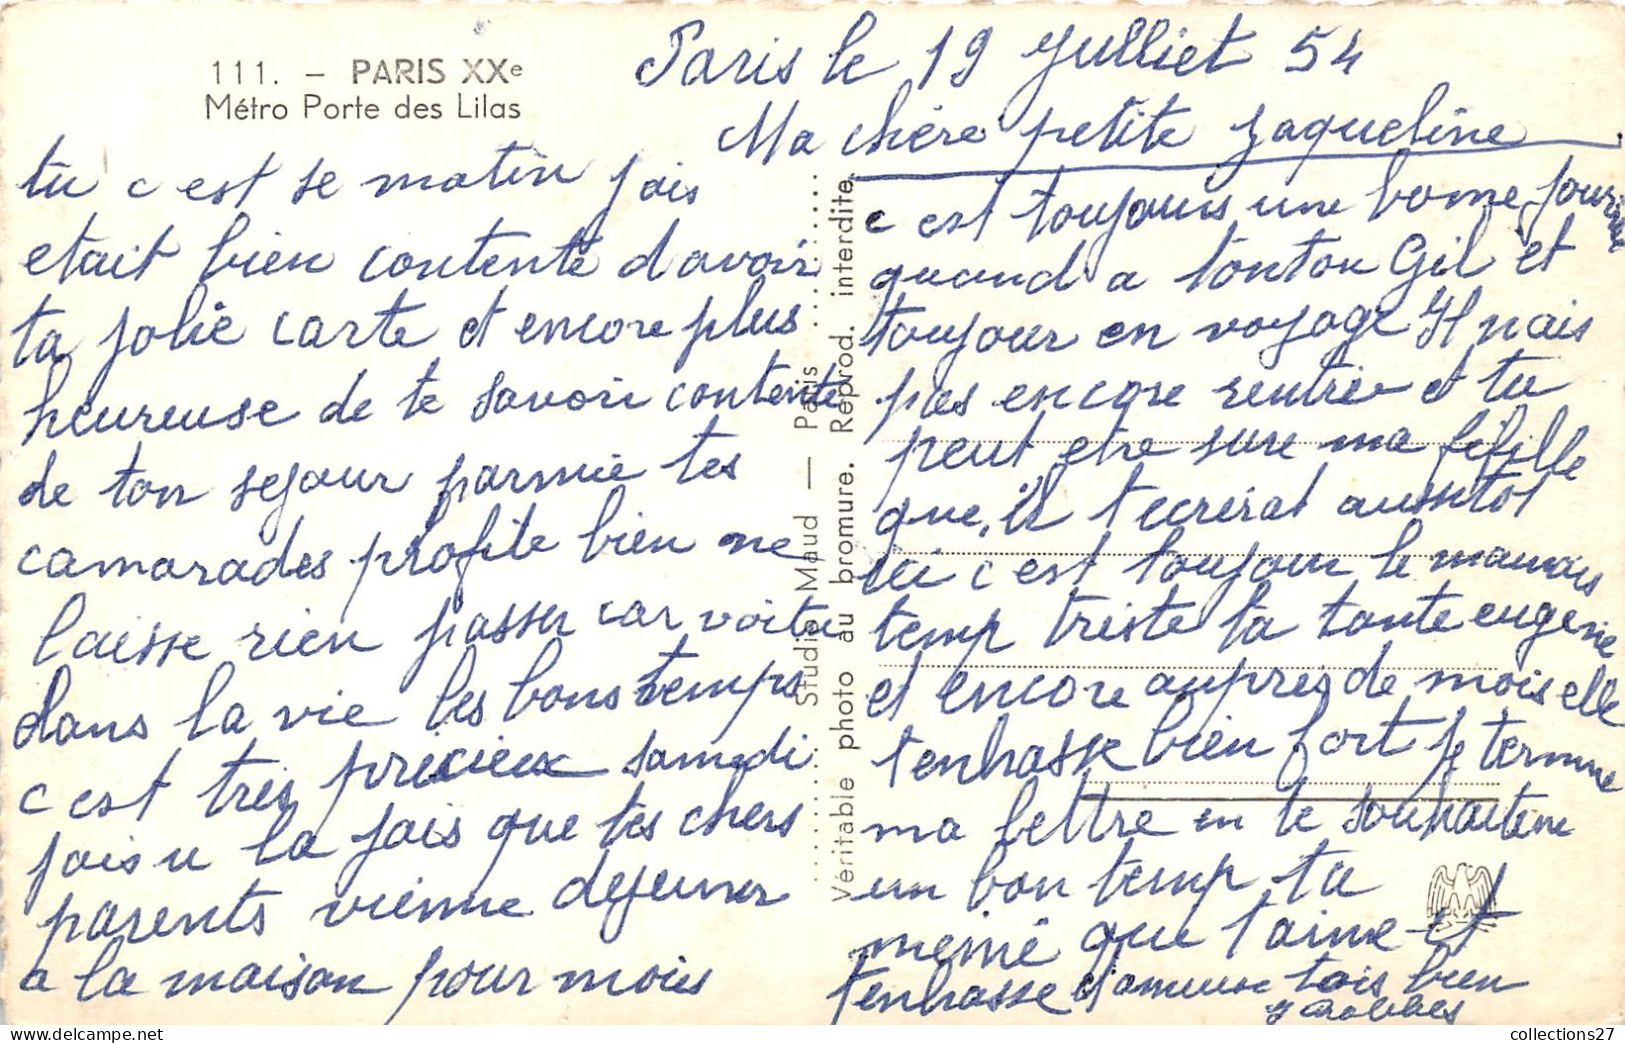 111. – PARIS XXe
Métro Porte des Lilas
Paris le 19 Julliet 54
Ma chère petite Jaqueline
tu c est se matin jais
etait bien contente davoir
ta jolie carte et encore plus
heureuse de te savoir contente
de ton sejour parmie tes
camarades profite bien ne
laisse rien passer car voitu
dans la vie les bons temps
c est très précieux samedi
jais u la jois que tes chers
parents vienne dejeuner
a la maison pour mois
c est toujours une bonne
quand a tonton Gil et
toujour en voyage Il nais
pas encore rentrer et tu
peut etre sure ma fifille
que il t ecrirat aussitot
ici c est toujour le mauvais
temp triste la tante eugenie
et encore aupres de mois elle
t enbrasse bien fort je termine
ma lettre en te souhaitene
un bon temp ta
mémé que t aime et
t enbrasse amuse tois bien
Studio Maud — Paris
Véritable photo au bromure. Reprod. interdite.
collections27